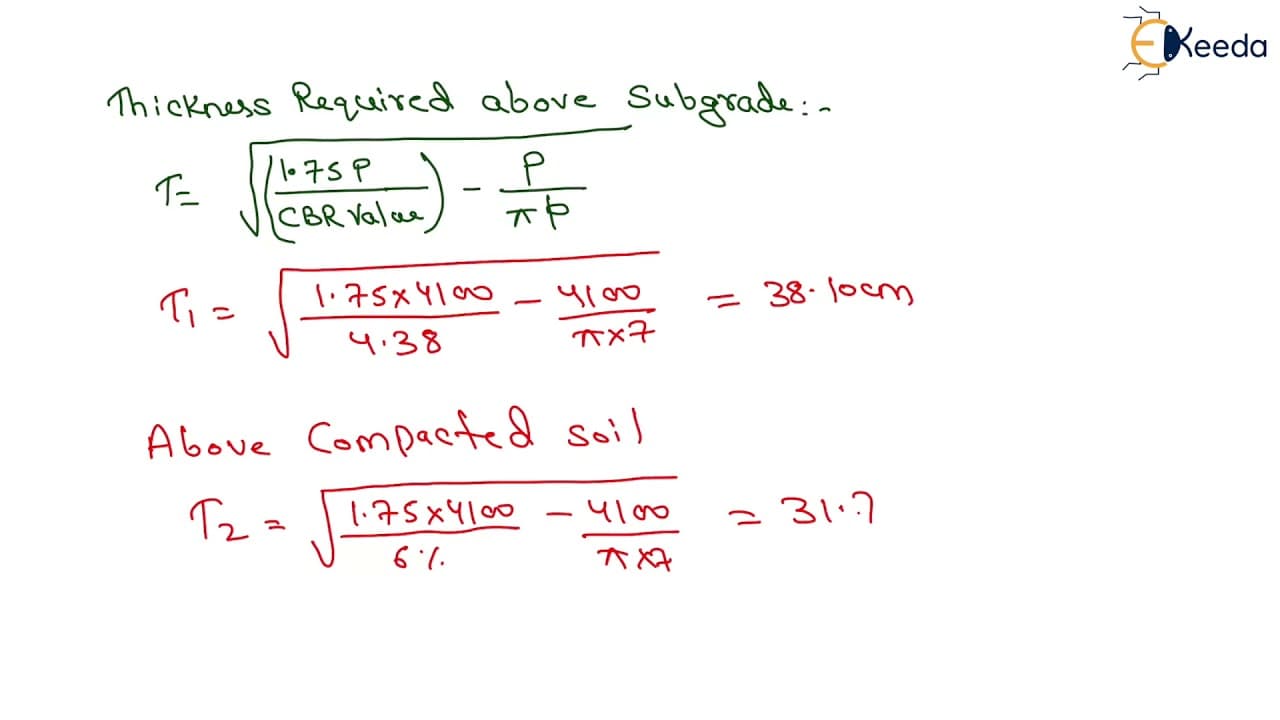 EKeeda
Thickness Required above Subgrade:-
T= √((1.75P/CBR Value) - P/πp)
T₁ = √(1.75×4100/4.38 - 4100/π×7) = 38.10cm
Above Compacted soil
T₂ = √(1.75×4100/6% - 4100/π×7) = 31.7